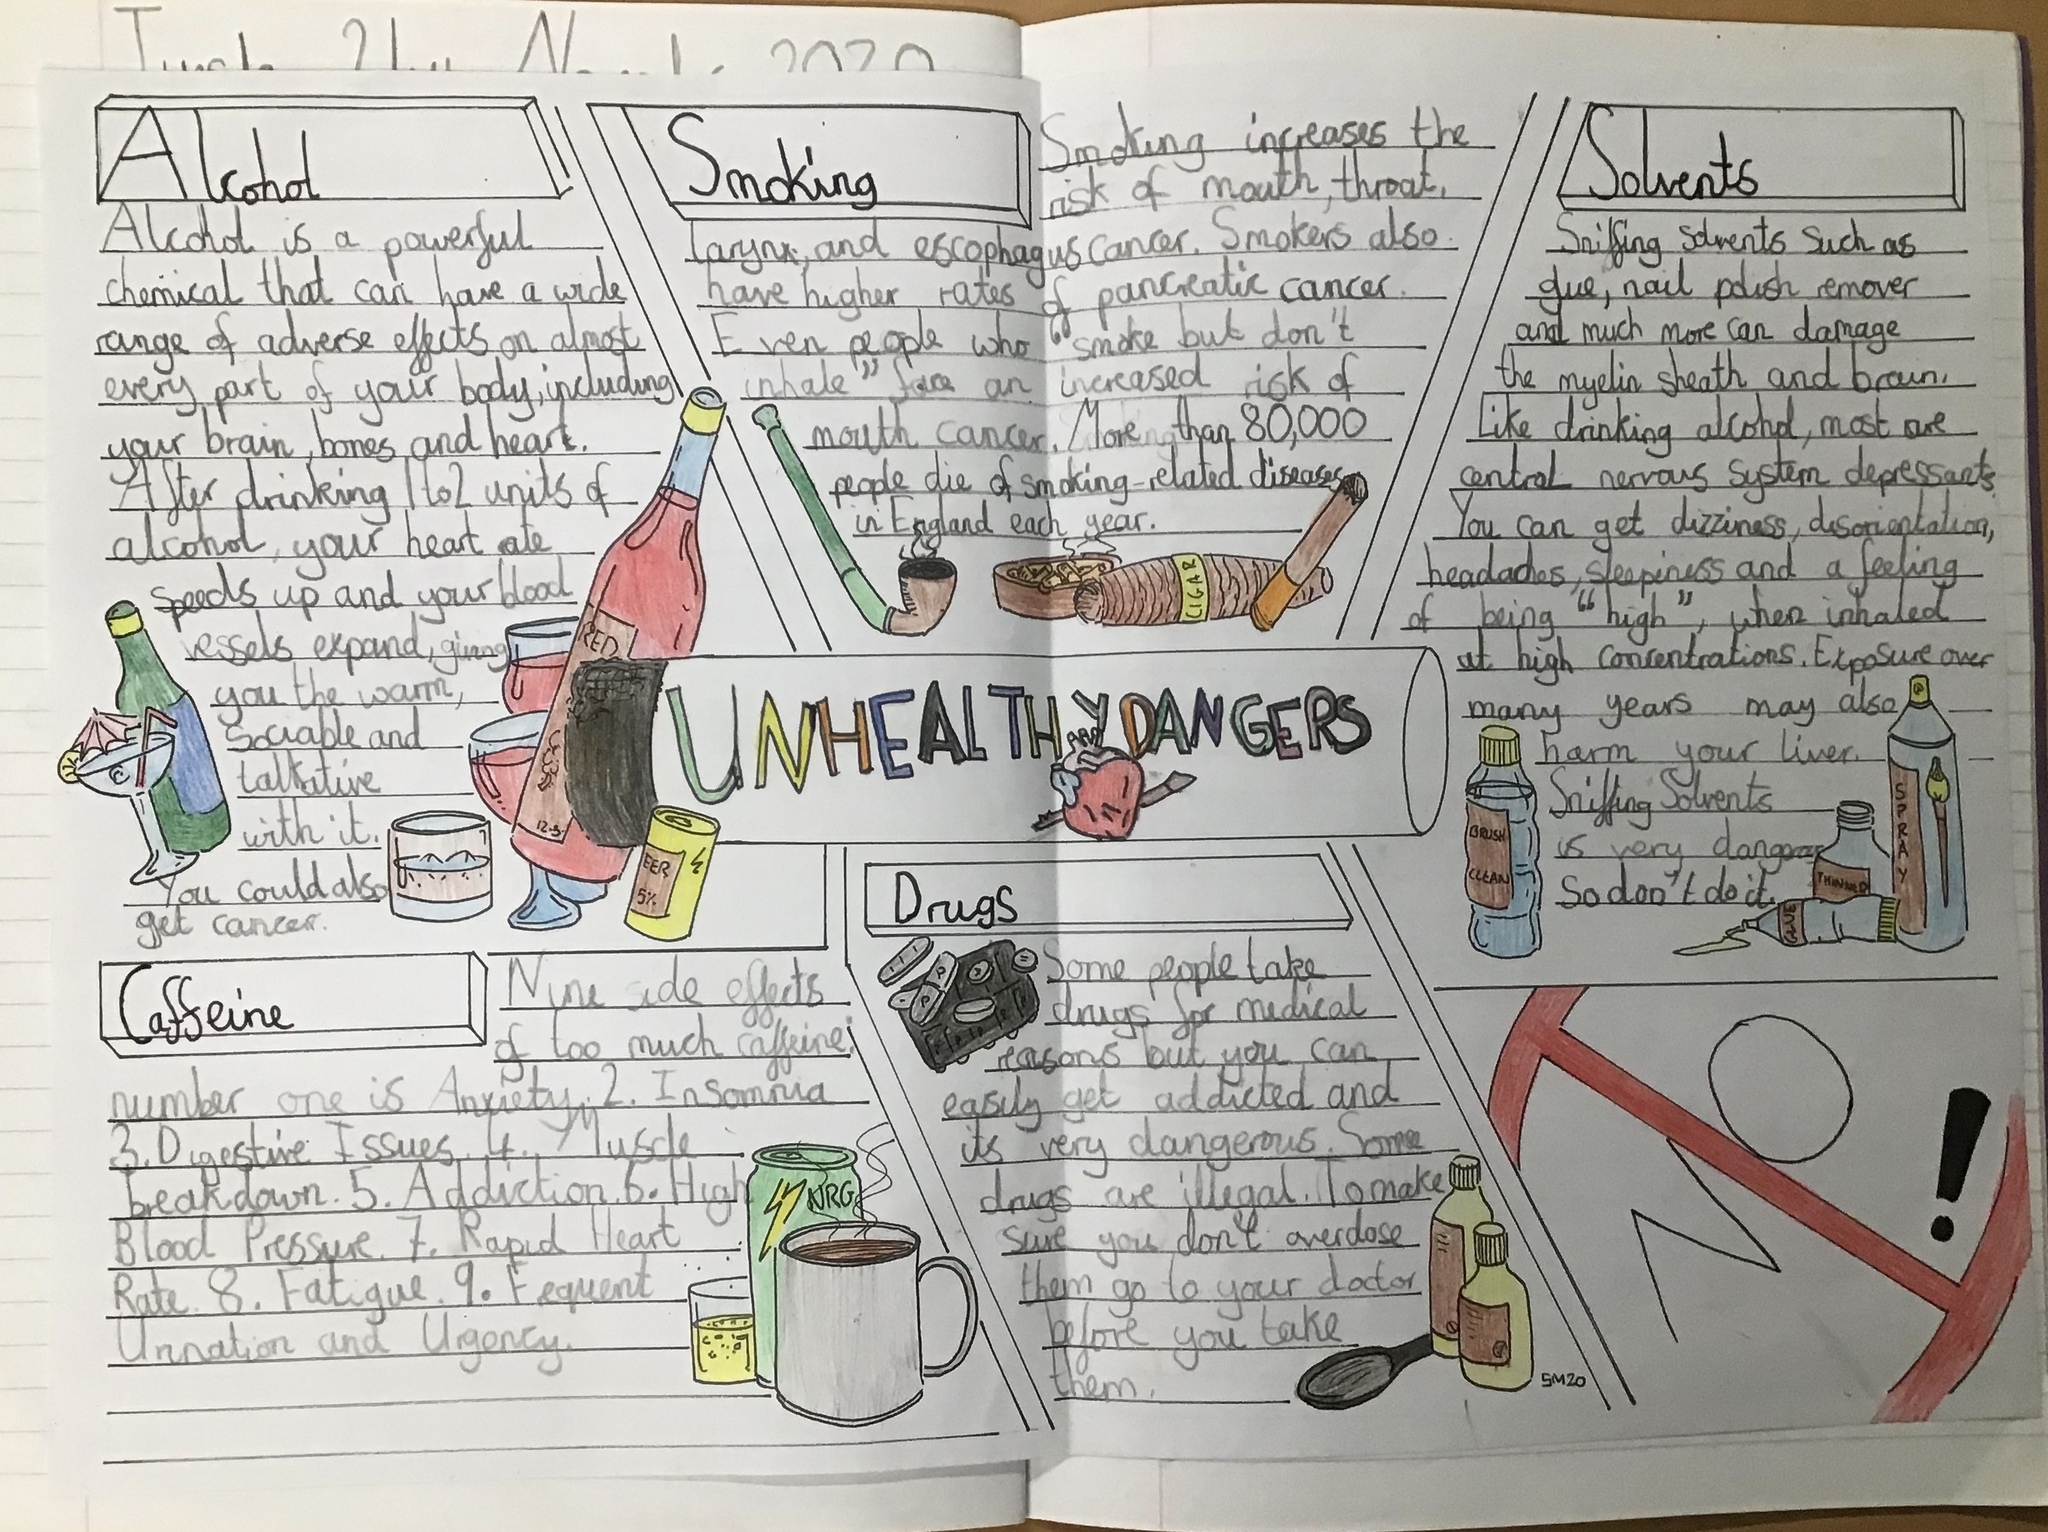 2020
Alcohol
Alcohol is a powerful
chemical that can have a wide
range of adverse effects on almost
every part of your body, including
your brain, bones and heart.
After drinking 1 to 2 units of
alcohol, your heart rate
speeds up and your blood
vessels expand, giving
you the warm,
sociable and
talkative
with it.
You could also
get cancer.
RED
12.5%
EER
5%
Smoking
Smoking increases the
risk of mouth, throat,
larynx, and escophagus cancer. Smokers also
have higher rates of pancreatic cancer.
Even people who "smoke but don't
inhale" face an increased risk of
mouth cancer. More than 80,000
people die of smoking-related diseases
in England each year.
CIGAR
UNHEALTHY DANGERS
Solvents
Sniffing solvents such as
glue, nail polish remover
and much more can damage
the myelin sheath and brain.
Like drinking alcohol, most are
central nervous system depressants.
You can get dizziness, disorientation,
headaches, sleepiness and a feeling
of being "high", when inhaled
at high concentrations. Exposure over
many years may also
harm your liver.
Sniffing Solvents
is very dangerous
So don't do it.
BRUSH
CLEAN
THINNER
GLUE
SPRAY
Caffeine
Nine side effects
of too much caffeine:
number one is Anxiety. 2. Insomnia
3. Digestive Issues. 4. Muscle
breakdown. 5. Addiction. 6. High
Blood Pressure. 7. Rapid Heart
Rate. 8. Fatigue. 9. Fequent
Urination and Urgency.
NRG
Drugs
Some people take
drugs for medical
reasons but you can
easily get addicted and
its very dangerous. Some
drugs are illegal. To make
sure you don't overdose
them go to your doctor
before you take
them.
SM20
NO!